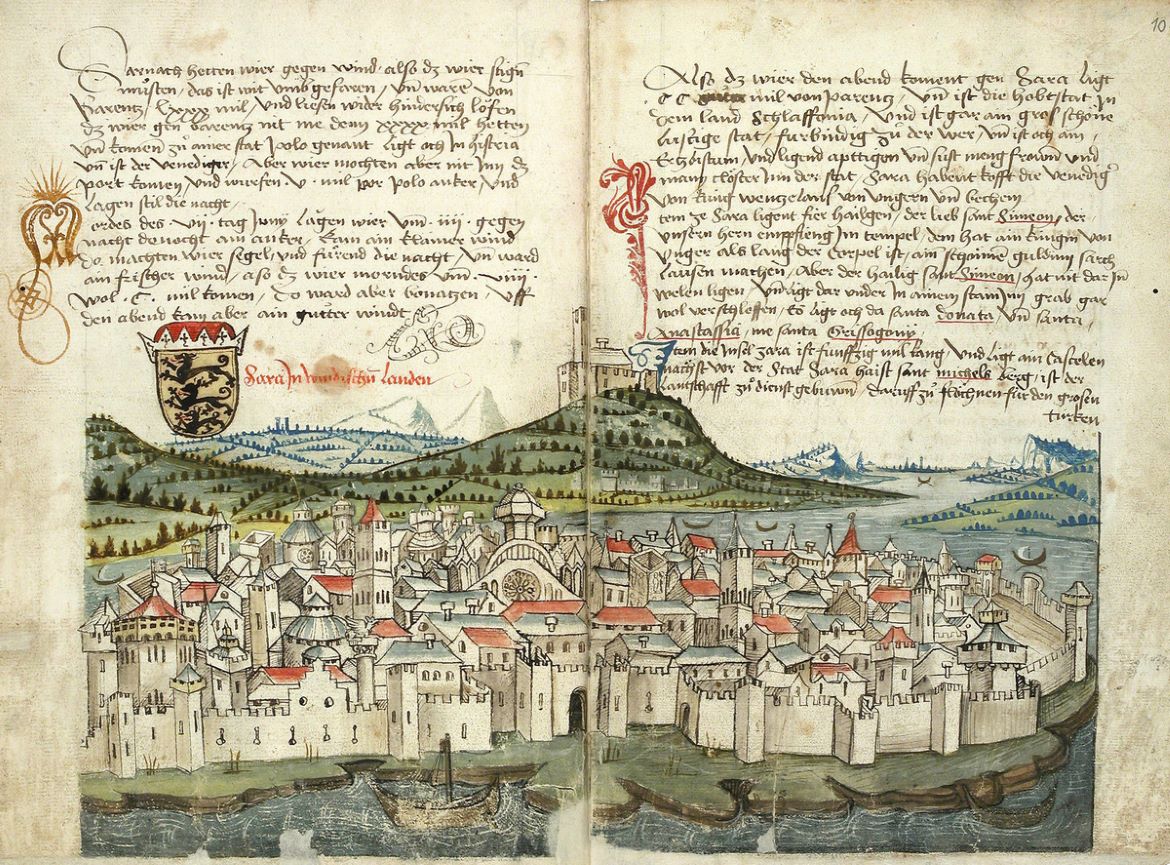 Darnach hetten wier gegen wind also dz wier
müsten, das ist wit umbgefaren, und ware von
Parentz, lxxxx mil, und liesen wider hinersich löfen
dz wier gen Parentz nit me denn xxxx mil hetten
und komen zu ainer stat polo genant ligt och in histria
und ist der venediger, Aber wier mochten aber nit in dz
port komen und wurfen .v. mil por polo anker, und
lagen stil die nacht
ordes des vii tag Juny lagen wier unn .iiii. gegen
nacht denocht am anker, kam ain klainer wind
do machten wier segel, und fürend die nacht, un ward
ain frischer wind, also dz wier morndes umm .viiii.
wol .C. mil komen, Do ward aber bonatzen, uff
den abend kam aber ain gutter windt
Sara In windischen Landen
10
Also dz wier den abend koment gen Sara ligt
CC mil von parentz, und ist die hobtstat In
dem land Schlaffonia, und ist gar ain gros schöne
lustige stat, fürbündig zu der wer, un ist och ain
Ertzbistum und ligend apttigen un sust meng frowen und
many closter inn der stat, Sara habent kofft die venedig
von küng wentzelaus von ungern und bechem
tem ze Sara ligent fier hailgen, der lieb sant Simeon, der
unsern hern empfieng im tempel, dem hat ain küngin von
unger als lang der corpel ist, ain schoinne guldinn sarch
laussen machen, Aber der hailig sant Simeon, hat nit dar in
welen ligen, und ligt dar under In ainem stainin grab gar
wol verschlossen, Es ligt och da santa donata, und santa
Anastassia, me santa Grissogony
Item die Insel zara ist funffzig mil lang, und ligt ain castelen
nächst vor der Stat Sara haist sant michels berg, ist der
lantschafft zu dienst gebuwen, daruff zu flöchnen für den grosen
turken